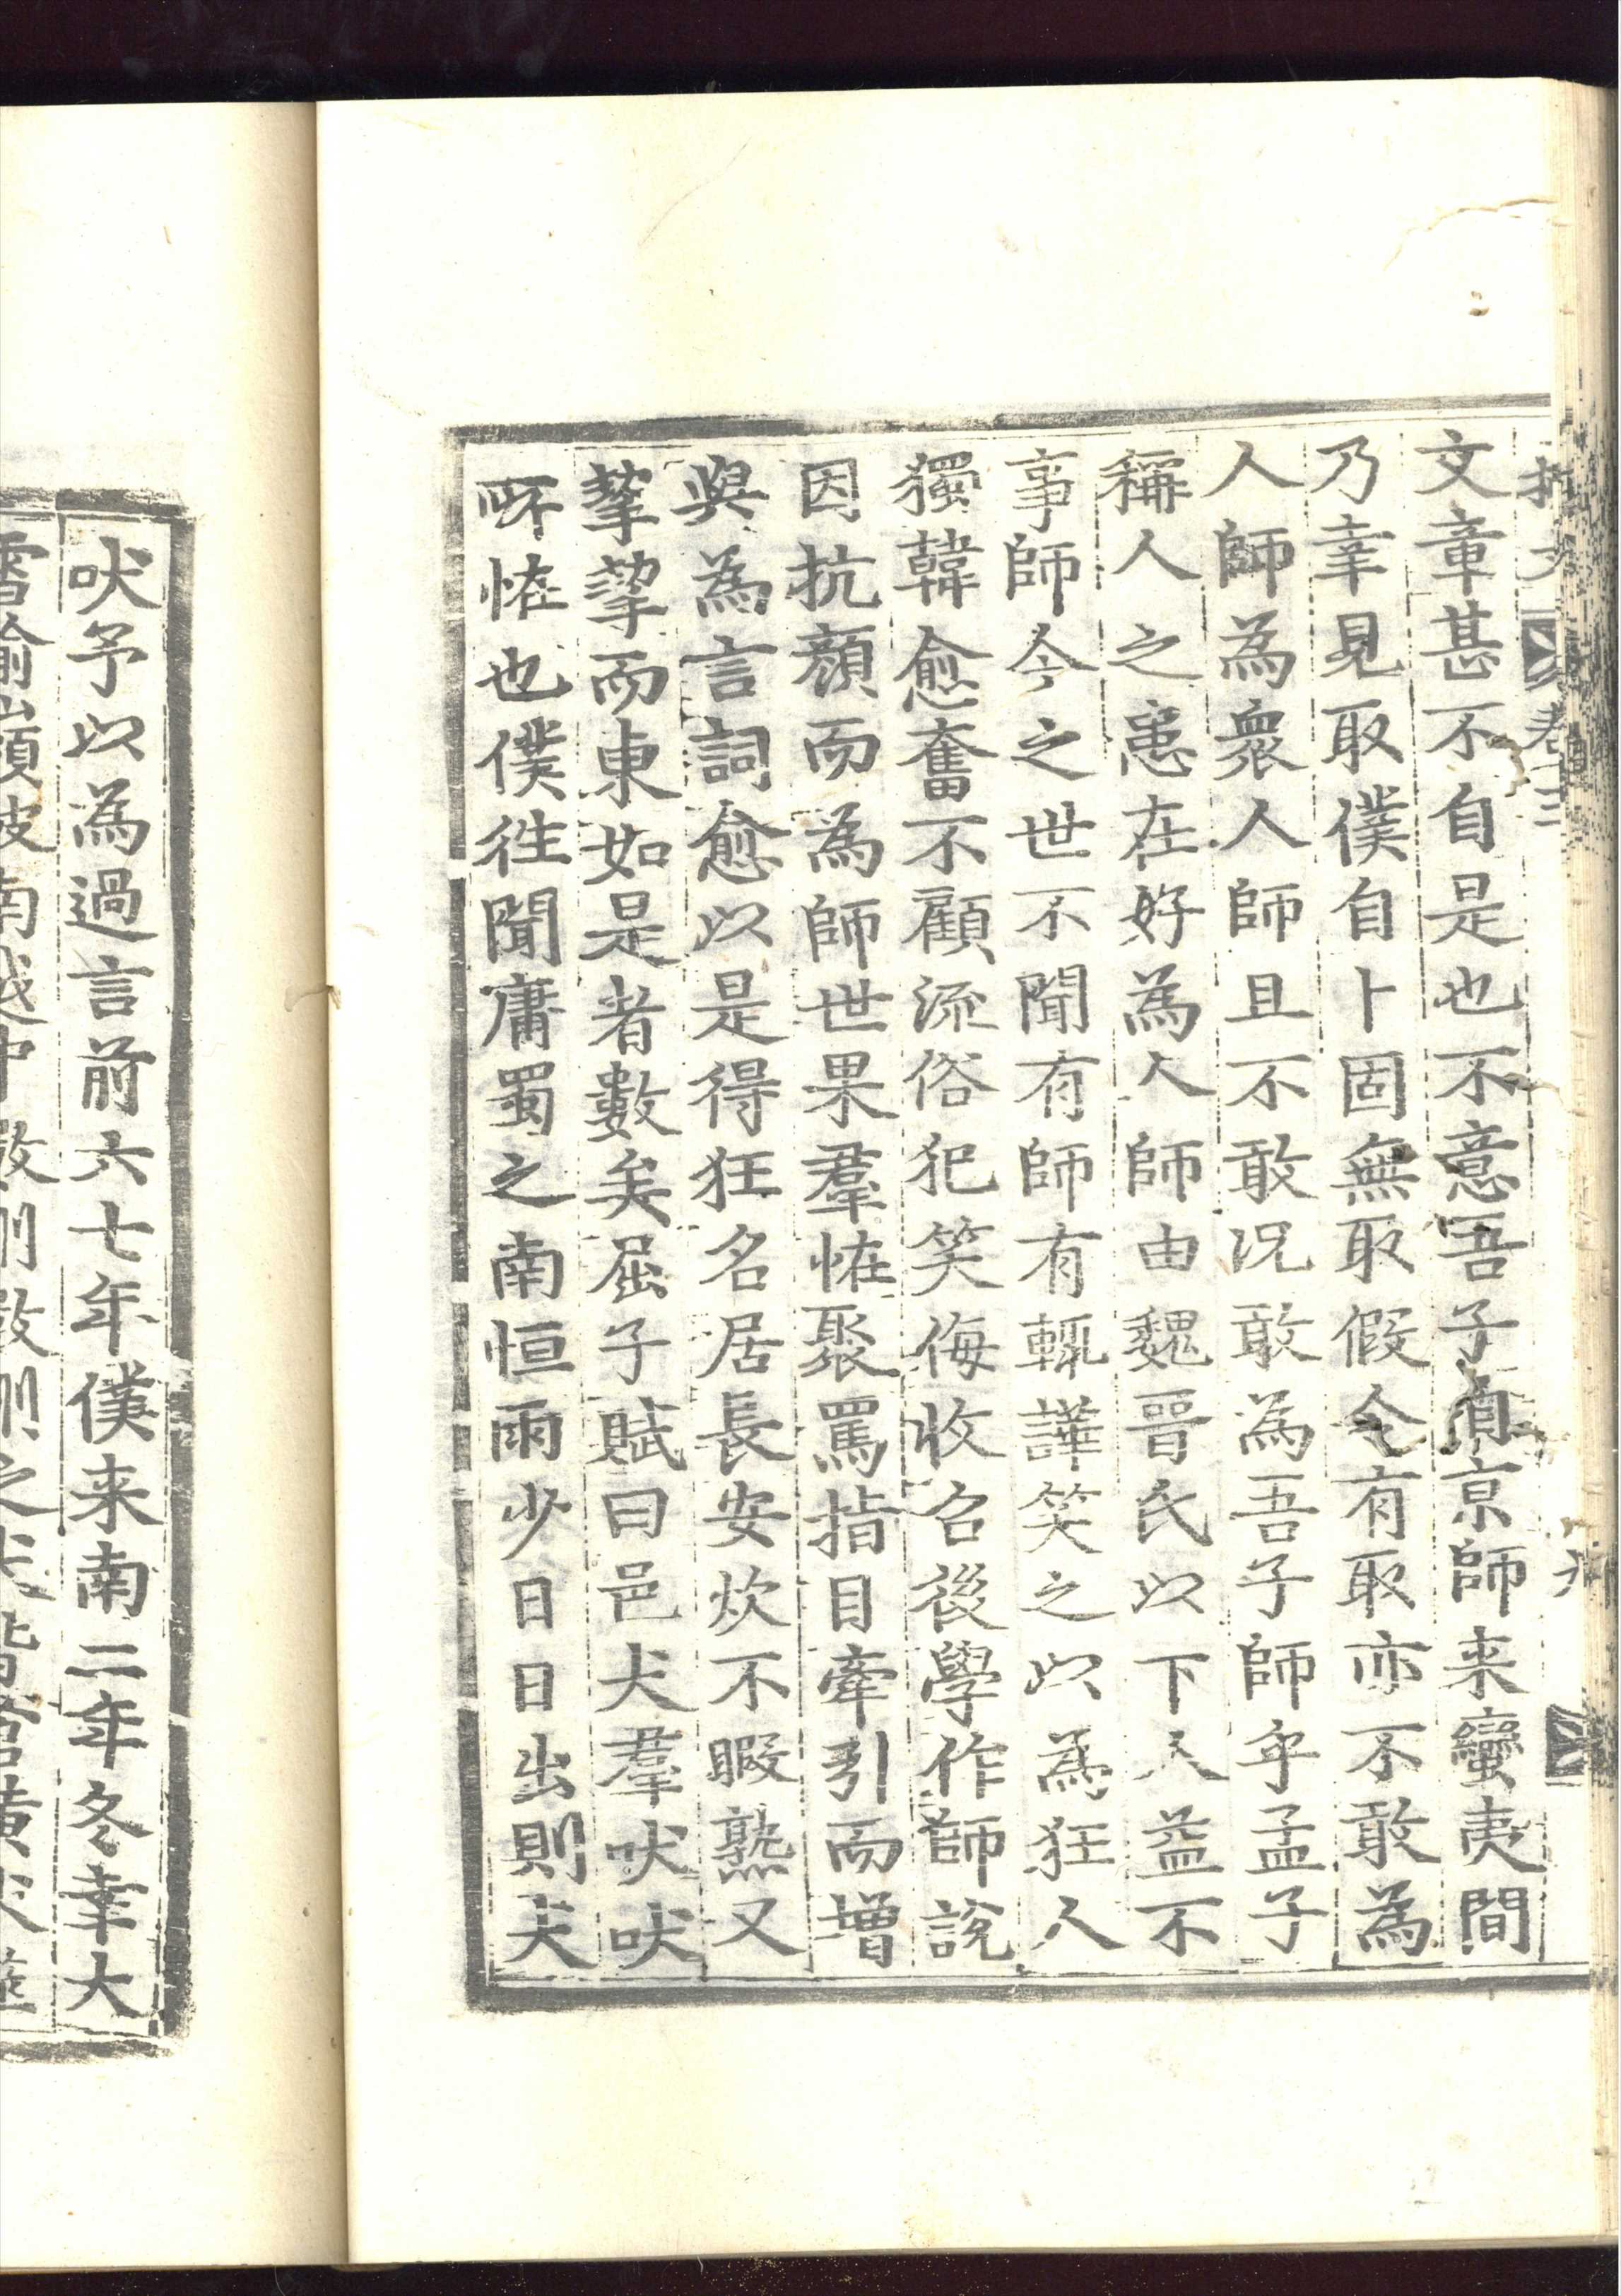 文章甚不自是也不意吾子自京師来蠻夷間
乃幸見取僕自卜固無取假令有取亦不敢為
人師為衆人師且不敢况敢為吾子師乎孟子
稱人之患在好為人師由魏晋氏以下人益不
事師今之世不聞有師有輒譁笑之以為狂人
獨韓愈奮不顧流俗犯笑侮收召後學作師說
因抗顔而為師世果羣恠聚罵指目牽引而增
與為言詞愈以是得狂名居長安炊不暇熟又
挈挈而東如是者數矣屈子賦曰邑犬羣吠吠
所恠也僕徃聞庸蜀之南恒雨少日日出則犬
吠予以為過言前六七年僕来南二年冬幸大
雪踰嶺被南越中數州數州之犬皆
卷三